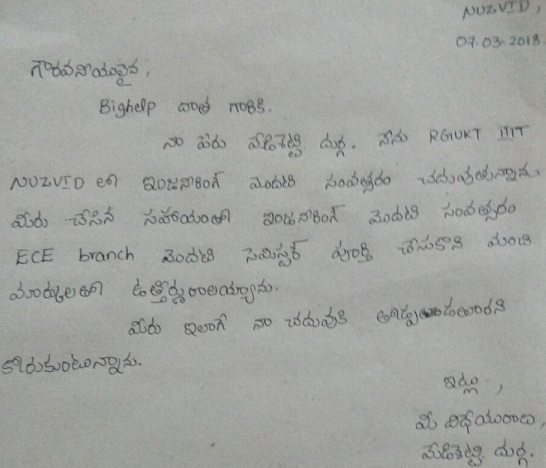 NUZVID,
07-03-2018.
గౌరవనీయులైన,
Bighelp దాత గారికి,
నా పేరు మేడిశెట్టి దుర్గ. నేను RGUKT IIIT
NUZVID లో ఇంజనీరింగ్ మొదటి సంవత్సరం చదువుతున్నాను
మీరు చేసిన సహాయంతో ఇంజనీరింగ్ మొదటి సంవత్సరం
ECE branch మొదటి సెమిస్టర్ పూర్తి చేసుకొని మంచి
మార్కులతో ఉత్తీర్ణురాలయ్యాను.
మీరు ఇలాగే నా చదువుకి తోడ్పడుతారని
కోరుకుంటున్నాను.
ఇట్లు,
మీ విధేయురాలు,
మేడిశెట్టి దుర్గ.